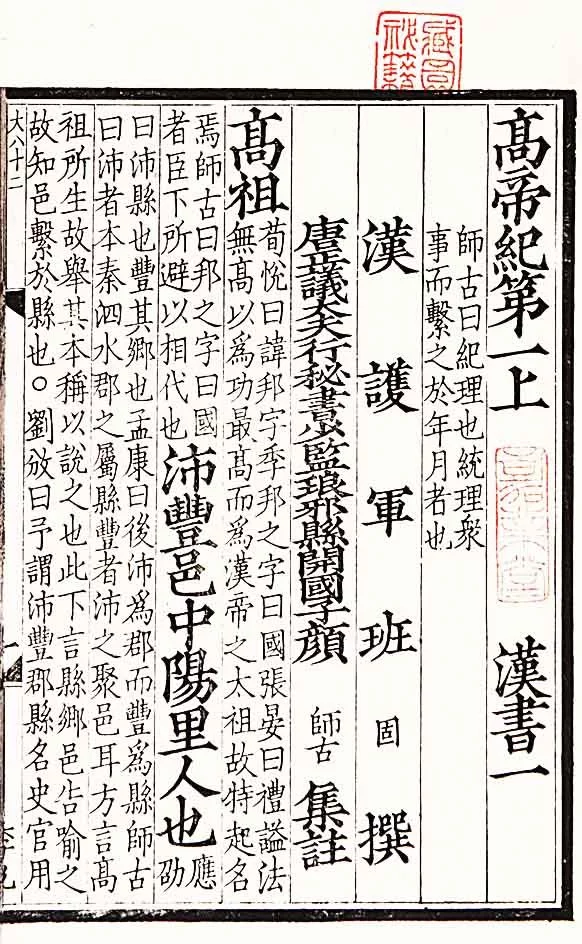 高帝紀第一上
漢書一
師古曰紀理也統理衆
事而繫之於年月者也
漢護軍班固撰
唐正議大夫行秘書少監琅邪縣開國子顏師古集註
高祖
荀悅曰諱邦字季邦之字曰國張晏曰禮謚法
無高以爲功最高而爲漢帝之太祖故特起名
焉師古曰邦之字曰國
者臣下所避以相代也
沛豐邑中陽里人也
應
劭
曰沛縣也豐其鄉也孟康曰後沛爲郡而豐爲縣師古
曰沛者本秦泗水郡之屬縣豐者沛之聚邑耳方言高
祖所生故舉其本稱以說之也此下言縣鄉邑告喻之
故知邑繫於縣也○劉攽曰予謂沛豐郡縣名史官用
大八十二